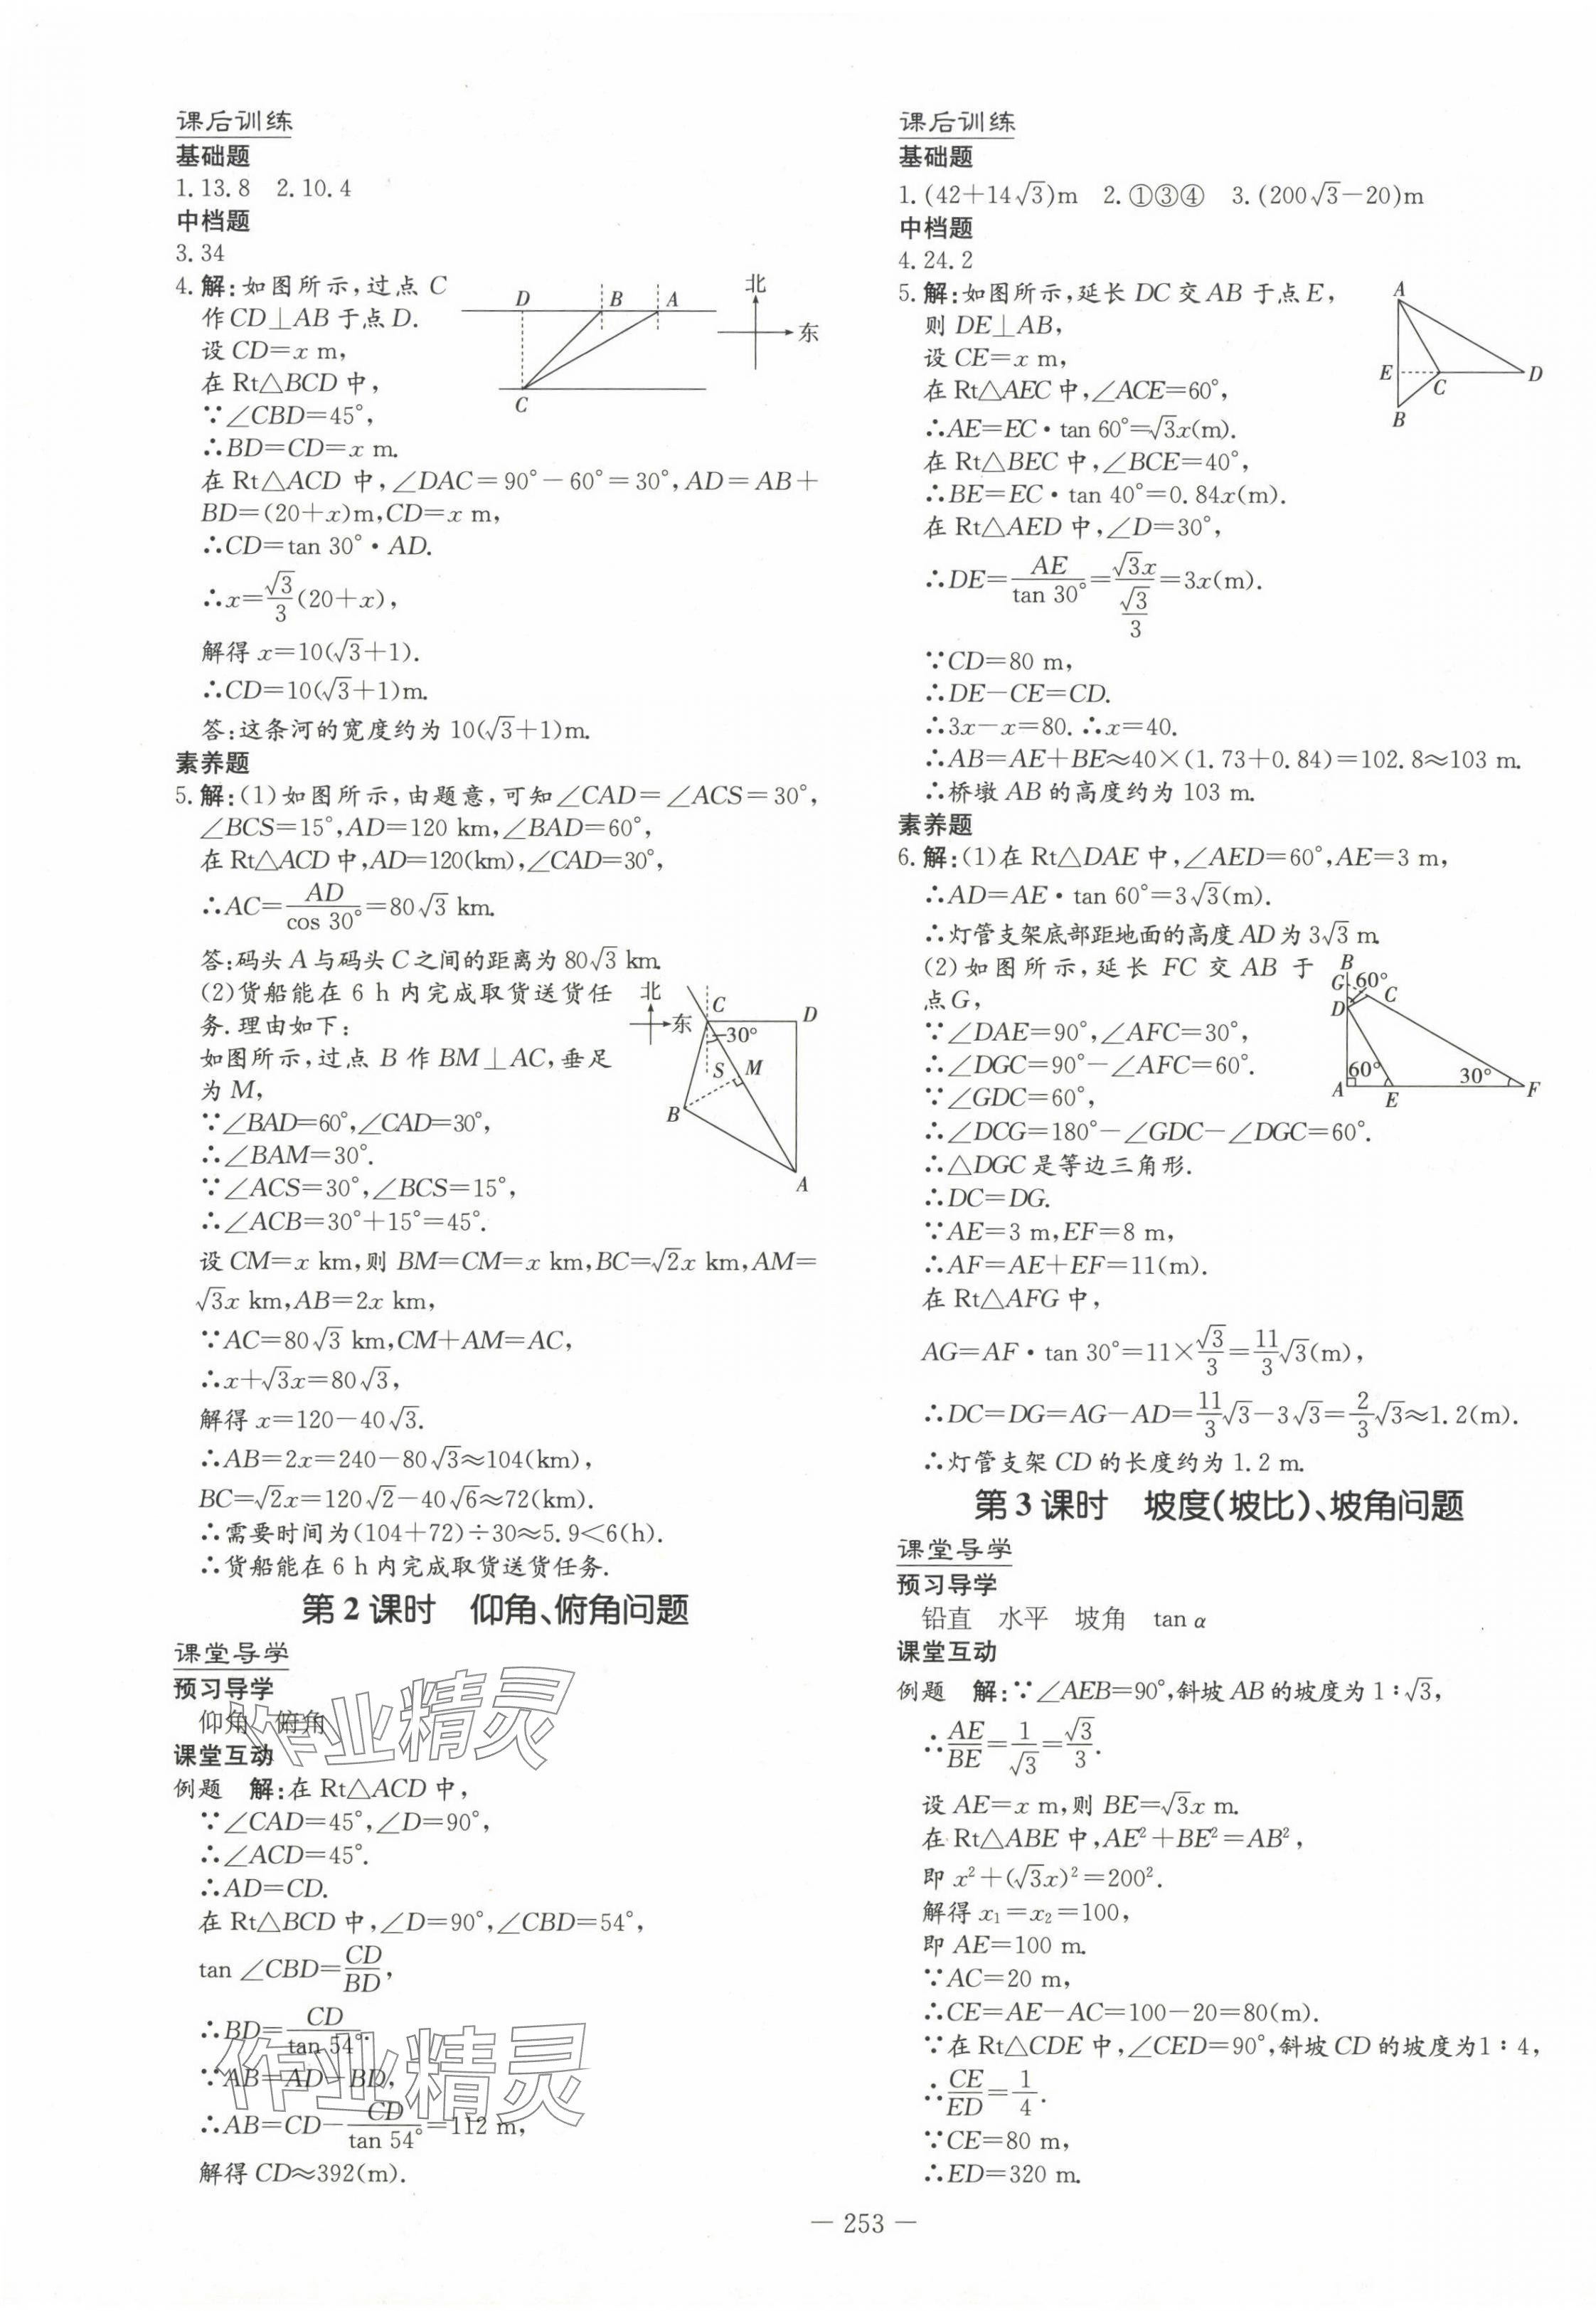 课后训练
基础题
1.13.8 2.10.4
中档题
3.34
4.解:如图所示,过点 C
作CD⊥AB于点D.
设CD=x m,
在Rt△BCD中,
∵∠CBD=45°,
∴BD=CD=x m.
在Rt△ACD中,∠DAC=90°-60°=30°,AD=AB+
BD=(20+x)m,CD=x m,
∴CD=tan 30°·AD.
∴x=√3/3(20+x),
解得x=10(√3+1).
∴CD=10(√3+1)m.
答:这条河的宽度约为10(√3+1)m.
D B A
C
北
东
素养题
5.解:(1)如图所示,由题意,可知∠CAD=∠ACS=30°,
∠BCS=15°,AD=120 km,∠BAD=60°,
在Rt△ACD中,AD=120(km),∠CAD=30°,
∴AC=AD/cos 30°=80√3 km.
答:码头A与码头C之间的距离为80√3 km.
(2)货船能在6 h内完成取货送货任
务.理由如下:
如图所示,过点B作BM⊥AC,垂足
为M,
∵∠BAD=60°,∠CAD=30°,
∴∠BAM=30°.
∵∠ACS=30°,∠BCS=15°,
∴∠ACB=30°+15°=45°.
北
东
C D
30°
S M
B
A
设CM=x km,则BM=CM=x km,BC=√2x km,AM=
√3x km,AB=2x km,
∵AC=80√3 km,CM+AM=AC,
∴x+√3x=80√3,
解得x=120-40√3.
∴AB=2x=240-80√3≈104(km),
BC=√2x=120√2-40√6≈72(km).
∴需要时间为(104+72)÷30≈5.9<6(h).
∴货船能在6 h内完成取货送货任务.
第2课时 仰角、俯角问题
课堂导学
预习导学
仰角 俯角
课堂互动
例题 解:在Rt△ACD中,
∵∠CAD=45°,∠D=90°,
∴∠ACD=45°.
∴AD=CD.
在Rt△BCD中,∠D=90°,∠CBD=54°,
tan ∠CBD=CD/BD,
∴BD=CD/tan 54°.
∵AB=AD-BD,
∴AB=CD-CD/tan 54°=112 m,
解得CD≈392(m).
作业精灵
作业精灵
课后训练
基础题
1.(42+14√3)m 2.①③④ 3.(200√3-20)m
中档题
4.24.2
5.解:如图所示,延长DC交AB于点E,
则DE⊥AB,
设CE=x m,
在Rt△AEC中,∠ACE=60°,
∴AE=EC·tan 60°=√3x(m).
在Rt△BEC中,∠BCE=40°,
∴BE=EC·tan 40°=0.84x(m).
在Rt△AED中,∠D=30°,
∴DE=AE/tan 30°=√3x/(√3/3)=3x(m).
∵CD=80 m,
∴DE-CE=CD.
∴3x-x=80.∴x=40.
∴AB=AE+BE≈40×(1.73+0.84)=102.8≈103 m.
∴桥墩AB的高度约为103 m.
A
E C D
B
素养题
6.解:(1)在Rt△DAE中,∠AED=60°,AE=3 m,
∴AD=AE·tan 60°=3√3(m).
∴灯管支架底部距地面的高度AD为3√3 m.
(2)如图所示,延长 FC 交 AB 于
点G,
∵∠DAE=90°,∠AFC=30°,
∴∠DGC=90°-∠AFC=60°.
∵∠GDC=60°,
∴∠DCG=180°-∠GDC-∠DGC=60°.
∴△DGC是等边三角形.
∴DC=DG.
∵AE=3 m,EF=8 m,
∴AF=AE+EF=11(m).
在Rt△AFG中,
AG=AF·tan 30°=11×√3/3=11/3√3(m),
∴DC=DG=AG-AD=11/3√3-3√3=2/3√3≈1.2(m).
∴灯管支架CD的长度约为1.2 m.
B
G 60° C
D
60° 30°
A E F
第3课时 坡度(坡比)、坡角问题
课堂导学
预习导学
铅直 水平 坡角 tan α
课堂互动
例题 解:∵∠AEB=90°,斜坡AB的坡度为1∶√3,
∴AE/BE=1/√3=√3/3.
设AE=x m,则BE=√3x m.
在Rt△ABE中,AE²+BE²=AB²,
即x²+(√3x)²=200².
解得x₁=x₂=100,
即AE=100 m.
∵AC=20 m,
∴CE=AE-AC=100-20=80(m).
∵在Rt△CDE中,∠CED=90°,斜坡CD的坡度为1∶4,
∴CE/ED=1/4.
∵CE=80 m,
∴ED=320 m.
— 253 —